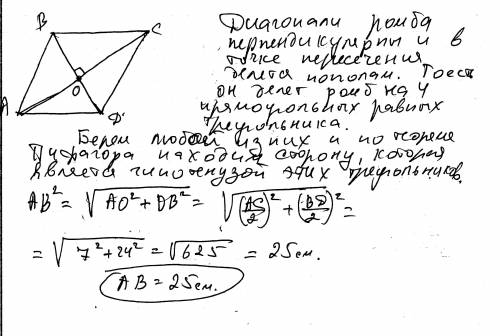 B C
O
A D
Диагонали ромба
перпендикулярны и в
точке пересечения
делятся пополам. Тоесть
он делет ромб на 4
прямоугольных равных
треугольника.
Берем любой из них и по теореме
Пифагора находим сторону, которая
является гипотенузой этих треугольников.
AB² = √AO² + OB² = √(AC/2)² + (BD/2)² =
= √7² + 24² = √625 = 25 см.
AB = 25 см.